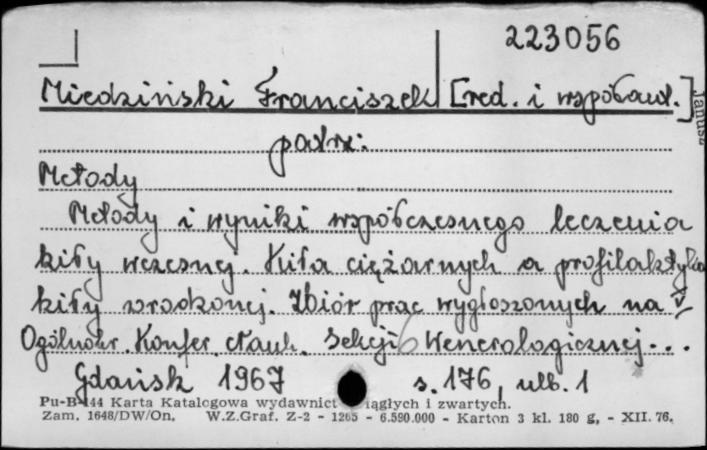 223056
Miedziński Franciszek [red. i współaut.]
Janusz
patrz:
Metody
Metody i wyniki współczesnego leczenia
kiły wczesnej. Kiła ciężarnych a profilaktyka
kiły wrodzonej. Zbiór prac wygłoszonych na V
Ogólnokr. Konfer. Nauk. Sekcji Wenerologicznej...
Gdańsk 1967 s. 176, nlb. 1
Pu-B-144 Karta Katalogowa wydawnict iągłych i zwartych.
Zam. 1648/DW/On. W.Z.Graf. Z-2 - 1265 - 6.590.000 - Karton 3 kl. 180 g, - XII. 76.